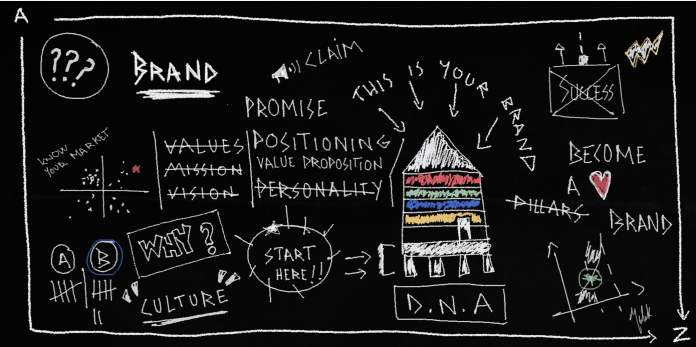 A
???
BRAND
CLAIM
THIS IS YOUR BRAND
SUCCESS
PROMISE
KNOW YOUR MARKET
VALUES
MISSION
VISION
POSITIONING
VALUE PROPOSITION
PERSONALITY
BECOME
A
PILLARS
BRAND
A
B
WHY?
CULTURE
START
HERE!!
D.N.A
Z